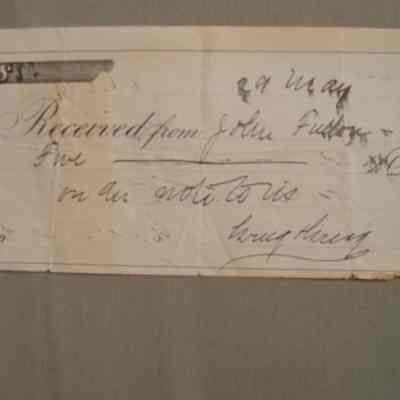 29 May
Received from John Fulton
Five
on his note to us